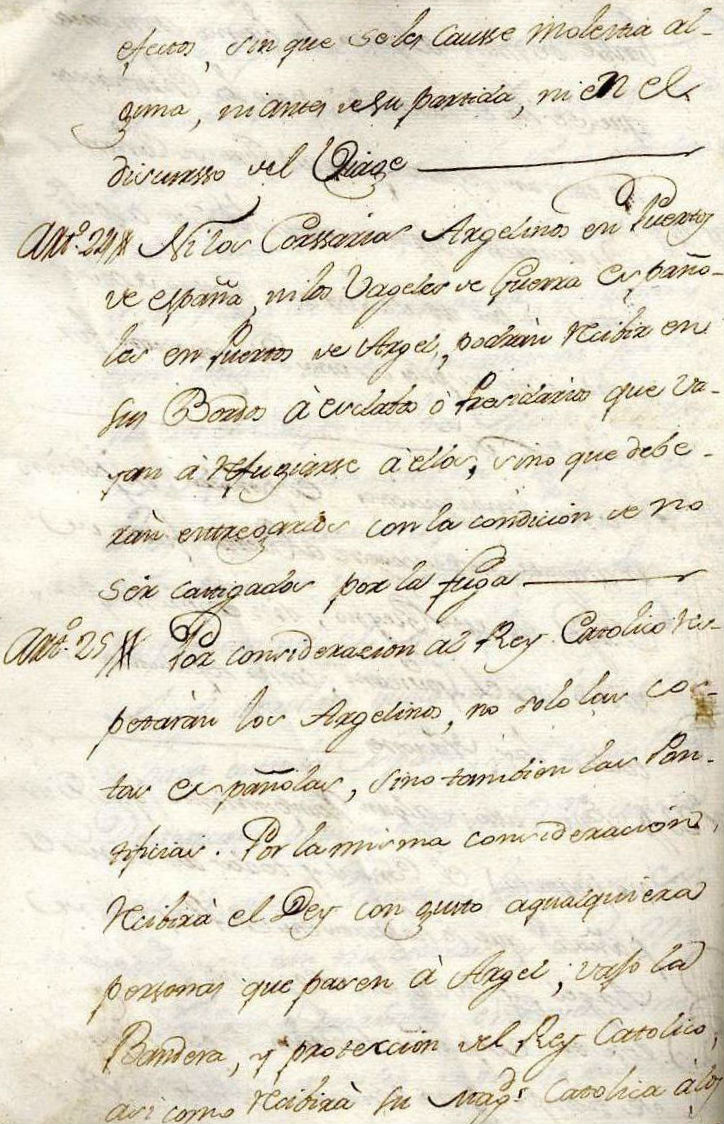 efectos, sin que se les causse molestia al-
guna, ni antes de su partida, ni en el
discursso del Viage
Arto. 24 Ni los Corssarios Argelinos en Puertos
de españa, ni los Vageles de Guerra españo-
les en Puertos de Argel, podràn recibir en
sus Bordos à esclabos ò Presidarios que va-
yan à refugiarse à ellos, sino que debe-
ràn entregarlos con la condicion de no
ser castigados por la fuga
Arto. 25 Por consideracion al Rey Catolico res-
petaràn los Argelinos, no solo las cos-
tas españolas, sino tambien las Pon-
tificias. Por la misma consideracion,
recibirà el Dey con gusto aqualquiera
personas que pasen à Argel, vajo la
Bandera, y proteccion del Rey Catolico,
asi como recibirà su Magd. Catolica à los